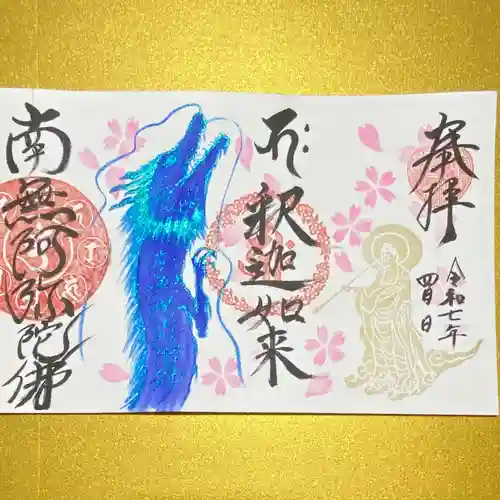 奉拝
令和七年
四月 日
釈迦如来
南無阿弥陀佛